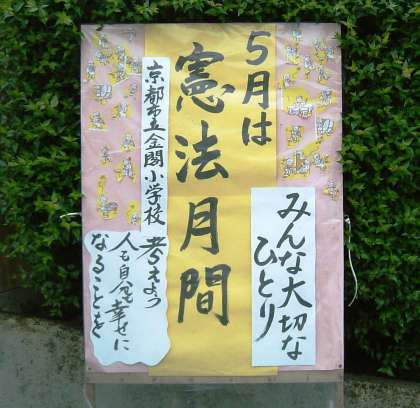 5月は
憲法月間
京都市立金閣小学校
みんな大切な
ひとり
考えよう
人も自分も幸せに
なることを